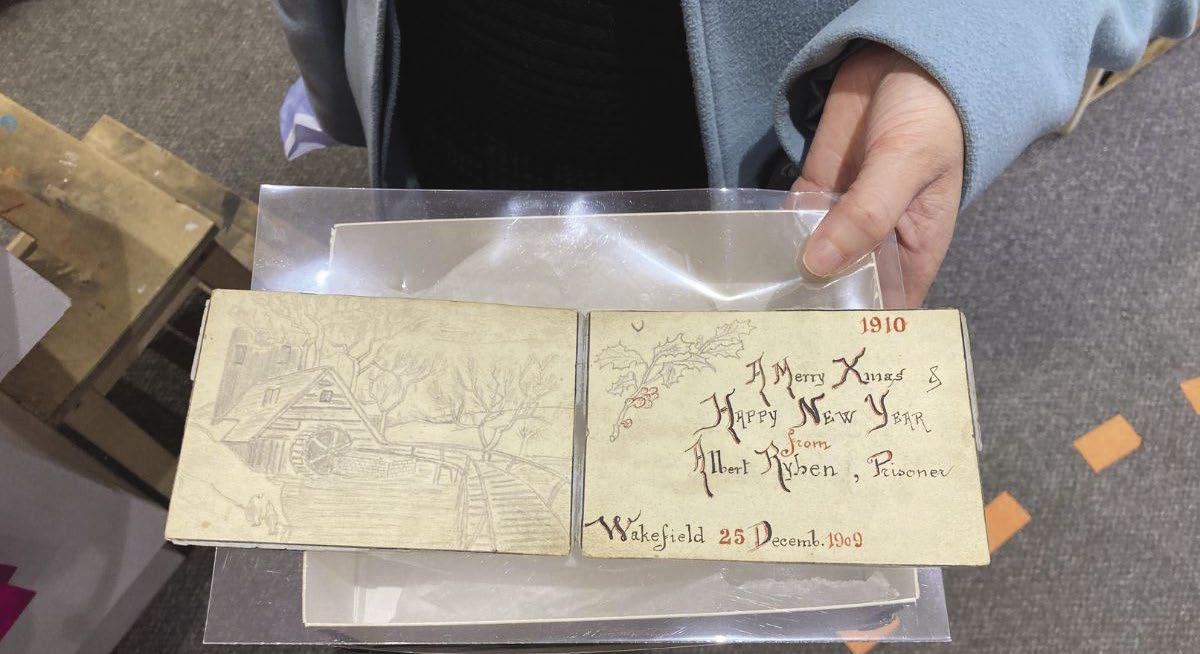 1910
A Merry Xmas &
Happy New Year
from
Albert Ryhen, Prisoner
Wakefield 25 Decemb. 1909